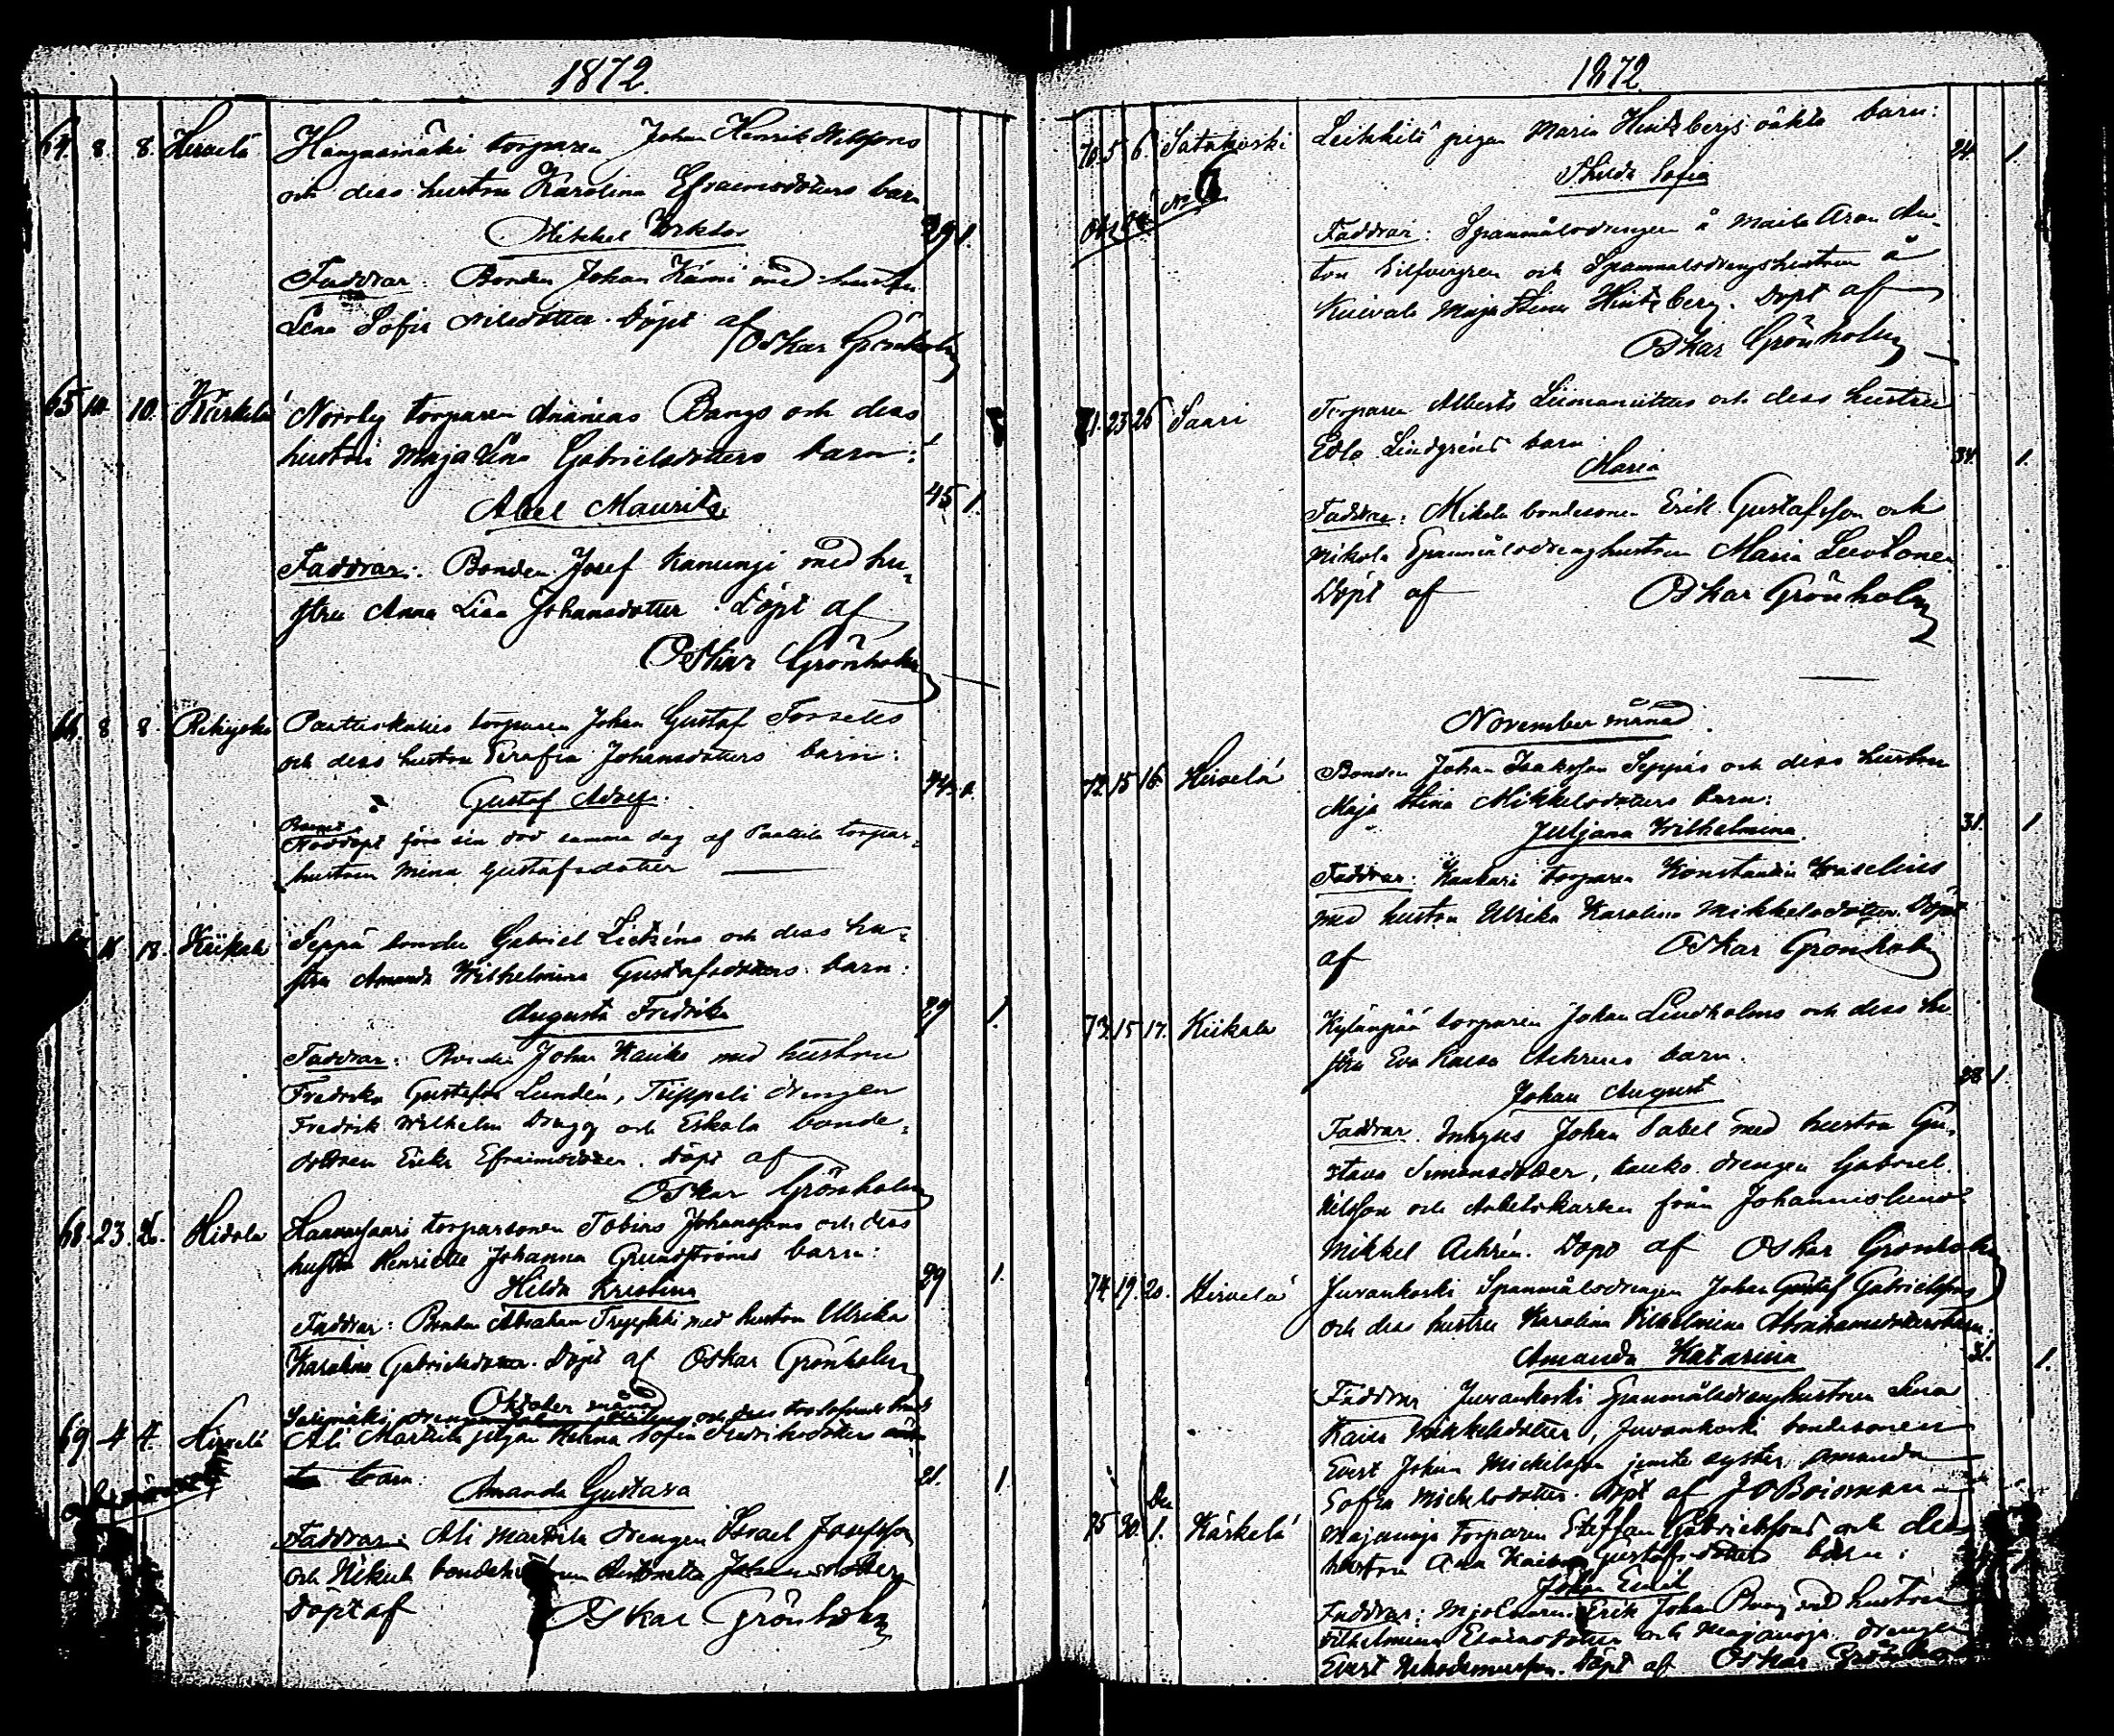 1872.
64. 8 8. Hirvelä Hangasmäki torparen Johan Henrik Nilssons
och dess hustru Karolina Efraimsdotters barn
Mikkel Viktor
29 1.
Faddrar: Bonden Johan Kämi med hustru
Lena Sofia Nilsdotter. Döpt af
Oskar Grönholm
65 10. 10. Kärkelä Norrby torparen Ananias Bangs och dess
hustru Maja Lena Gabrielsdotters barn:
Abel Maurits
45 1.
Faddrar: Bonden Josef Kanungi med hu-
stru Anna Lisa Johansdotter. Döpt af
Oskar Grönholm
66 8 8. Rekijoki torparen Johan Gustaf Forsells
och dess hustru Serafia Johansdotters barn:
Gustaf Adolf.
44
Barnet
Nöddöpt före sin död samma dag af Paatila torpar-
hustrun Mina Gustafsdotter
16 18. Kiikala Seppä bonden Gabriel och dess hu-
stru Amanda Wilhelmina Gustafsdotters barn:
Augusta Fredrika
29 1.
Faddrar: Bonden Johan Kaukо med hustru
Fredrika Gustafva Lundén, Tiippeli drängen
Fredrik Wilhelm och Eskola bonde-
Erika Efraimsdotter. Döpt af
Oskar Grönholm
68. 23. 26. Hidola torparsonen Tobias Johanssons och dess
hustru Henriette Johanna Grundströms barn:
Hilda Kristina
29 1.
Faddrar: Bonden Abraham med hustru Ulrika
Karolina Gabrielsdotter. Döpt af Oskar Grönholm
Oktober månad
69. 4 4. Hirvelä Ali Marttila pigan Helena Sofia Fredriksdotters
barn:
Amanda Gustava
21. 1
Faddrar: Ali Marttila drängen Israel Josefsson
och
Döpt af Oskar Grönholm
1872.
70. 5 6. Satakoski Leikkilä pigan Maria Hintzbergs oäkta barn:
Thilda Sofia
24. 1.
Faddrar: Spanmålsdrängen å Maila Aron An-
ton Silfvergren och Spanmålsdrängshustrun å
Kuivala Maja Stina Hintzberg. Döpt af
Oskar Grönholm
71. 23 26 Saari Torparen Alberts och dess hustru
Edla Lindgréns barn
Maria
34. 1.
Faddrar: Mikola bondesonen Erik Gustafsson och
Mikola Spanmålsdränghustrun Maria
Döpt af Oskar Grönholm
November månad.
72. 15 16. Hirvelä Bonden Johan Isaksson Seppäs och dess hustru
Maja Stina Mikkelsdotters barn:
Juljana Wilhelmina
31. 1
Faddrar: Kankari torparen Konstantin
med hustru Ulrika Karolina Mikkelsdotter. Döpt
af Oskar Grönholm
73. 15 17. Kiikala Kylänpää torparen Johan Lindholms och dess hu-
stru Eva Kaisa Achréns barn.
Johan August
28 1
Faddrar. Inhyses Johan Sabel med hustru Gu-
stava Simonsdotter, Kauko drängen Gabriel
Nilsson och Arbetskarlen från Johannislund
Mikkel Achrén. Döpt af Oskar Grönholm
74. 19. 20. Hirvelä Juvankoski Spanmålsdrängen Johan Gustaf Gabrielssons
och dess hustru Karolina Vilhelmina Abrahamsdotters barn:
Amanda Katarina
31. 1.
Faddrar Juvankoski Spanmålsdränghustrun Lena
Kaisa Mikkelsdotter, Juvankoski bondesonen
Evert Johan Mickelsson jemte syster Amanda
Sofia Mickelsdotter. Döpt af J O Boisman
75 30. Dec 1. Kärkelä Torparen Steffan Gabrielssons och dess
hustru Anna Kaisa Gustafsdotters barn:
Johan Emil
Faddrar: Erik Johan Bang med hustru
Vilhelmina och drängen
Evert Nikodemusson. Döpt af Oskar Grönholm